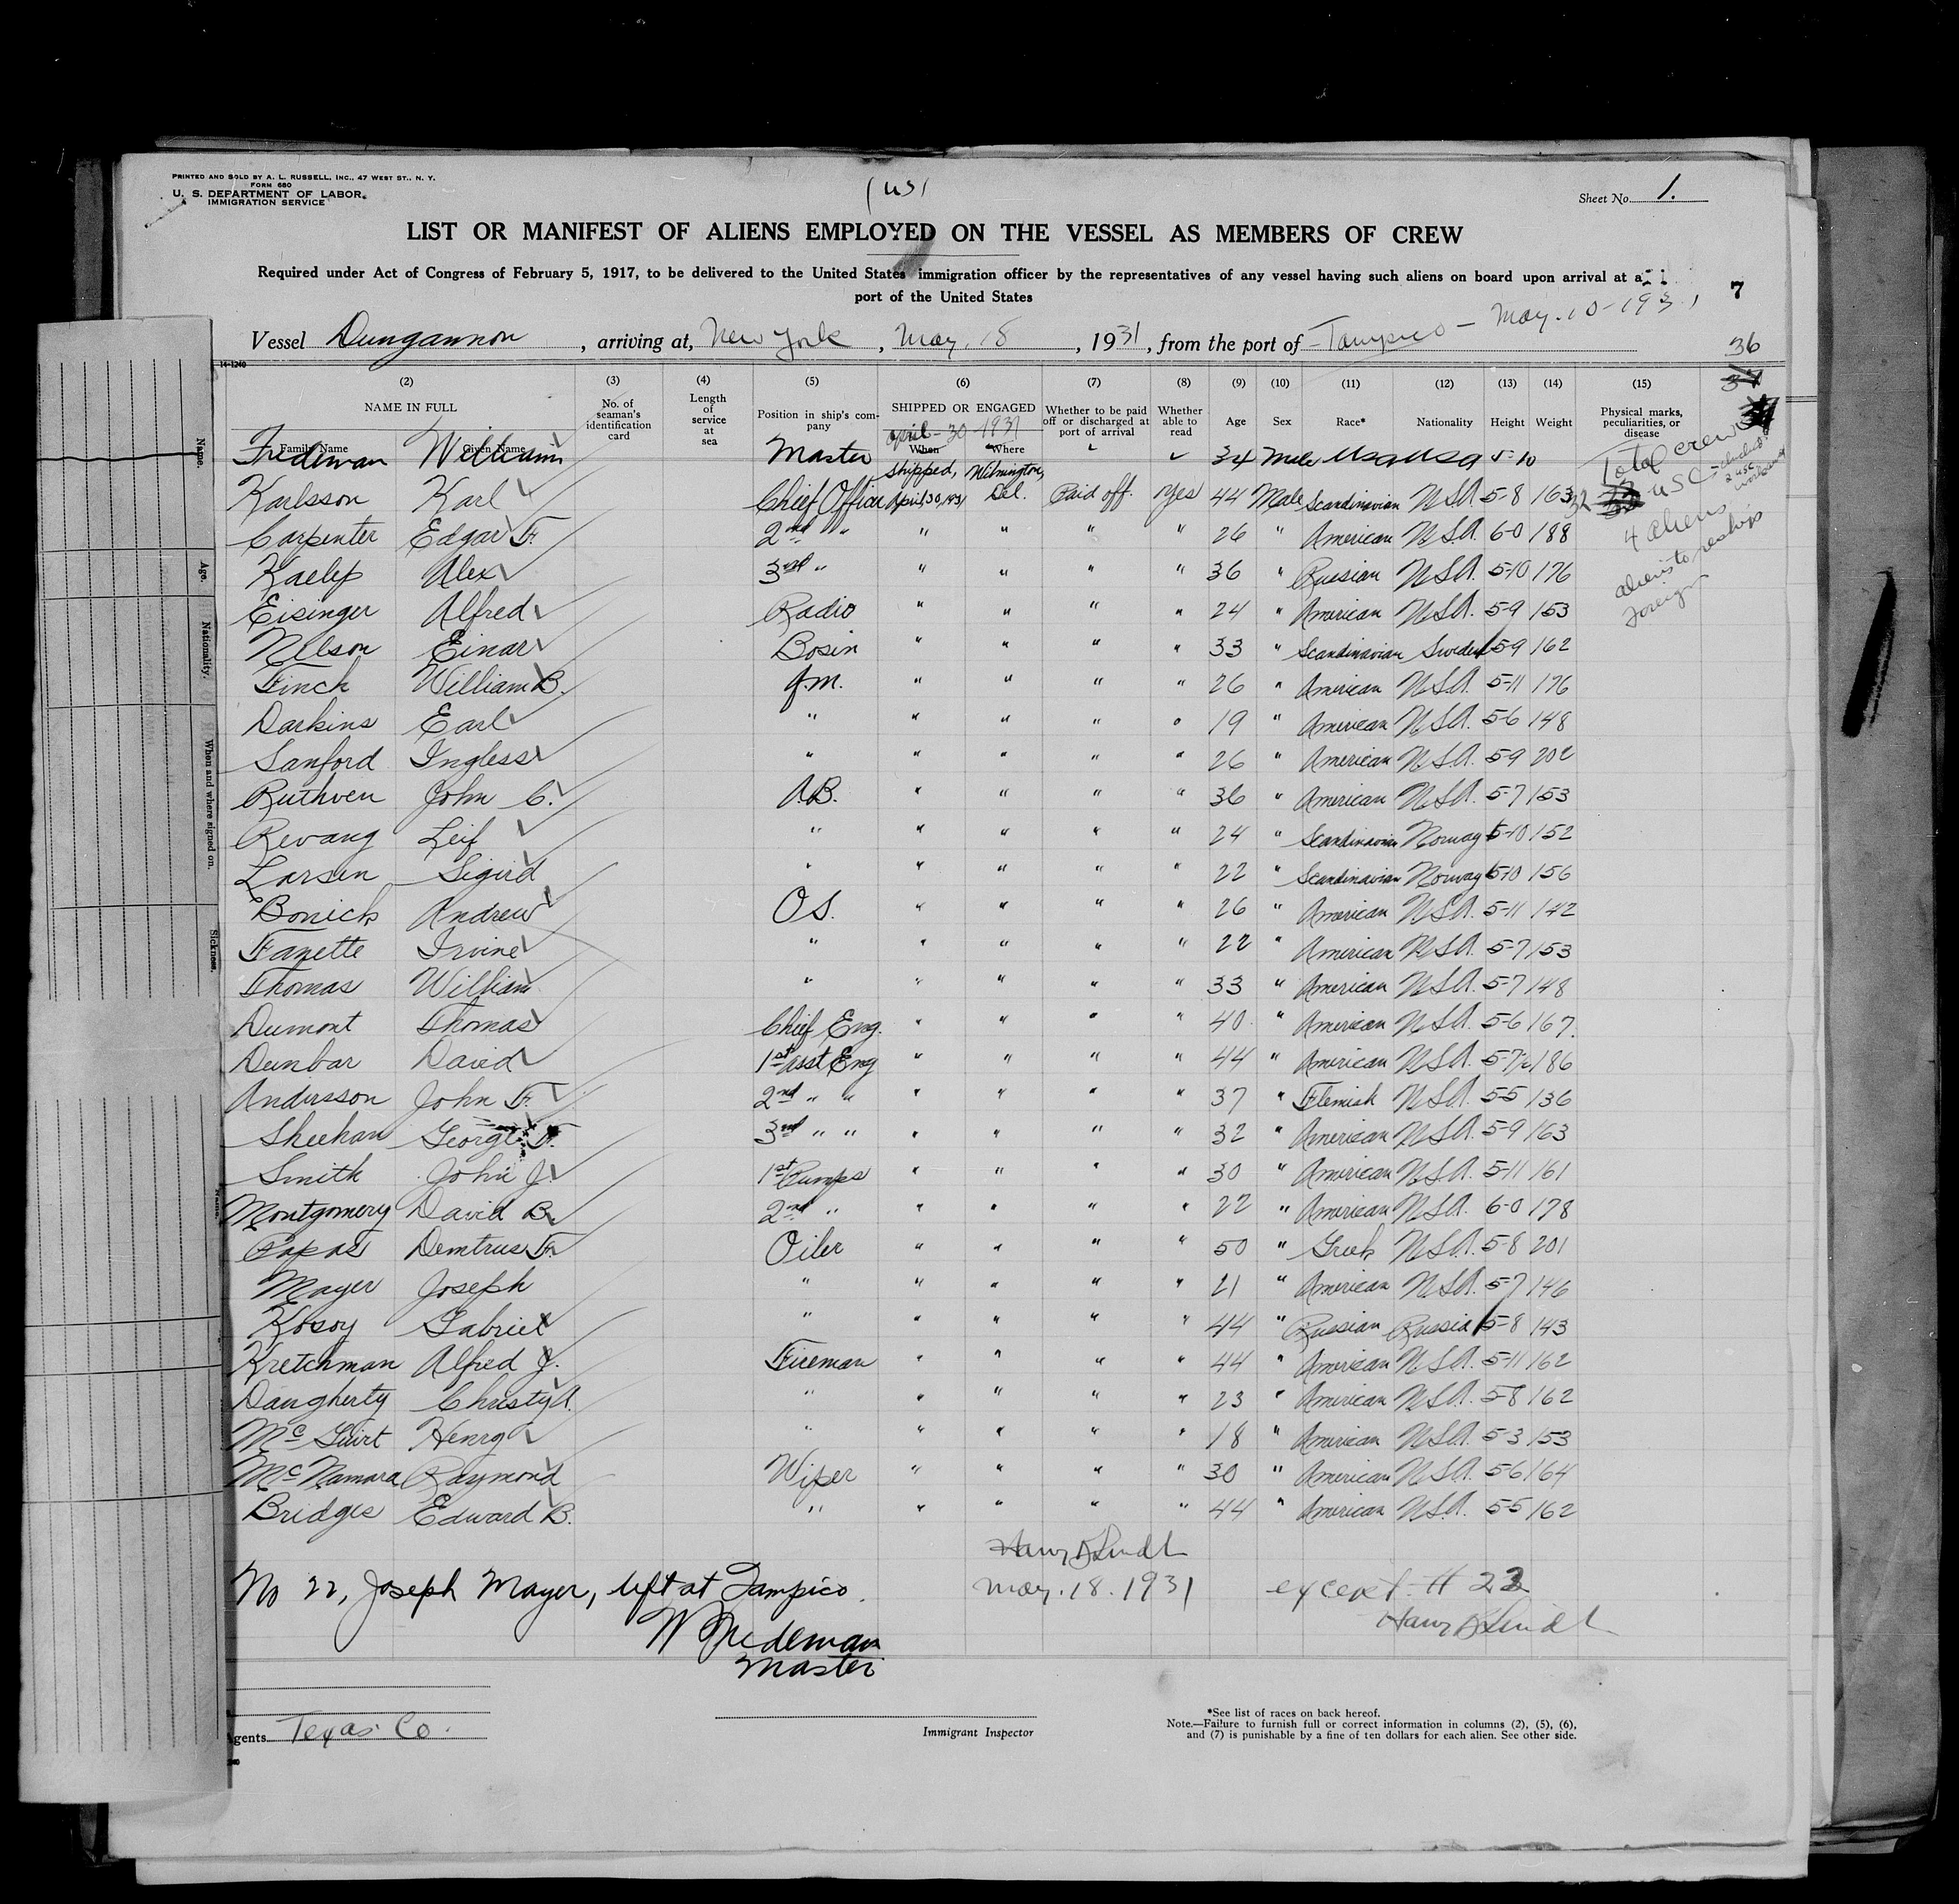 PRINTED AND SOLD BY A. L. RUSSELL, INC., 47 WEST ST., N. Y.
FORM 680
U. S. DEPARTMENT OF LABOR
IMMIGRATION SERVICE
(US)
Sheet No. 1.
LIST OR MANIFEST OF ALIENS EMPLOYED ON THE VESSEL AS MEMBERS OF CREW
Required under Act of Congress of February 5, 1917, to be delivered to the United States immigration officer by the representatives of any vessel having such aliens on board upon arrival at a
port of the United States
7
Vessel Dungannon, arriving at, New York, May. 18, 1931, from the port of Tampico - May. 10-1931
36
14-1240
(2) (3) (4) (5) (6) (7) (8) (9) (10) (11) (12) (13) (14) (15)
NAME IN FULL Family Name Given Name No. of seaman's identification card Length of service at sea Position in ship's company SHIPPED OR ENGAGED When Where Whether to be paid off or discharged at port of arrival Whether able to read Age Sex Race* Nationality Height Weight Physical marks, peculiarities, or disease
april-30 1931
Fredeman William Master " " 34 Male USA USA 5-10
Shipped, Wilmington,
Karlsson Karl Chief Officer April,30,1931 Del. Paid off. Yes 44 Male Scandinavian U.S.A. 5-8 163
Carpenter Edgar F. 2nd " " " " " 26 " American U.S.A. 6-0 188
Kaelep Alex 3rd " " " " " 36 " Russian U.S.A. 5-10 176
Eisinger Alfred Radio " " " " 24 " American U.S.A. 5-9 153
Nelson Einar Bosin " " " " 33 " Scandinavian Sweden 5-9 162
Finch William B. Q.M. " " " " 26 " American U.S.A. 5-11 176
Darkins Earl " " " " " 19 " American U.S.A. 5-6 148
Sanford Ingless " " " " " 26 " American U.S.A. 5-9 202
Ruthven John C. A.B. " " " " 36 " American U.S.A. 5-7 153
Revang Leif " " " " " 24 " Scandinavian Norway 5-10 152
Larsen Sigurd " " " " " 22 " Scandinavian Norway 5-10 156
Bonick Andrew O.S. " " " " 26 " American U.S.A. 5-11 142
Fanette Irvine " " " " " 22 " American U.S.A. 5-7 153
Thomas William " " " " " 33 " American U.S.A. 5-7 148
Dumont Thomas Chief Eng. " " " " 40 " American U.S.A. 5-6 167.
Dunbar David 1st Asst Eng " " " " 44 " American U.S.A. 5-7½ 186
Andersson John F. 2nd " " " " " " 37 " Flemish U.S.A. 5-5 136
Sheehan George F. 3rd " " " " " " 32 " American U.S.A. 5-9 163
Smith John J. 1st Pumps " " " " 30 " American U.S.A. 5-11 161
Montgomery David B. 2nd " " " " " 22 " American U.S.A. 6-0 178
Papas Demtrus F. Oiler " " " " 50 " Greek U.S.A. 5-8 201
Mayer Joseph " " " " " 21 " American U.S.A. 5-7 146
Kosoy Gabriel " " " " " 44 " Russian Russia 5-8 143
Kretchman Alfred J. Fireman " " " " 44 " American U.S.A. 5-11 162
Daugherty Christy A. " " " " " 23 " American U.S.A. 5-8 162
McGuirt Henry " " " " " 18 " American U.S.A. 5-3 153
McNamara Raymond Wiper " " " " 30 " American U.S.A. 5-6 164
Bridges Edward B. " " " " " 44 " American U.S.A. 5-5 162
Total crew
32 USC - includes 2 USC workaway
4 aliens
aliens to reship
foreign
Harry D Lindh
No 22, Joseph Mayer, left at Tampico.
May. 18. 1931
except # 22
Harry D Lindh
W Fredeman
Master
Agents Texas Co.
Immigrant Inspector
*See list of races on back hereof.
Note.—Failure to furnish full or correct information in columns (2), (5), (6),
and (7) is punishable by a fine of ten dollars for each alien. See other side.
Name.
Age.
Nationality.
When and where signed on.
Sickness.